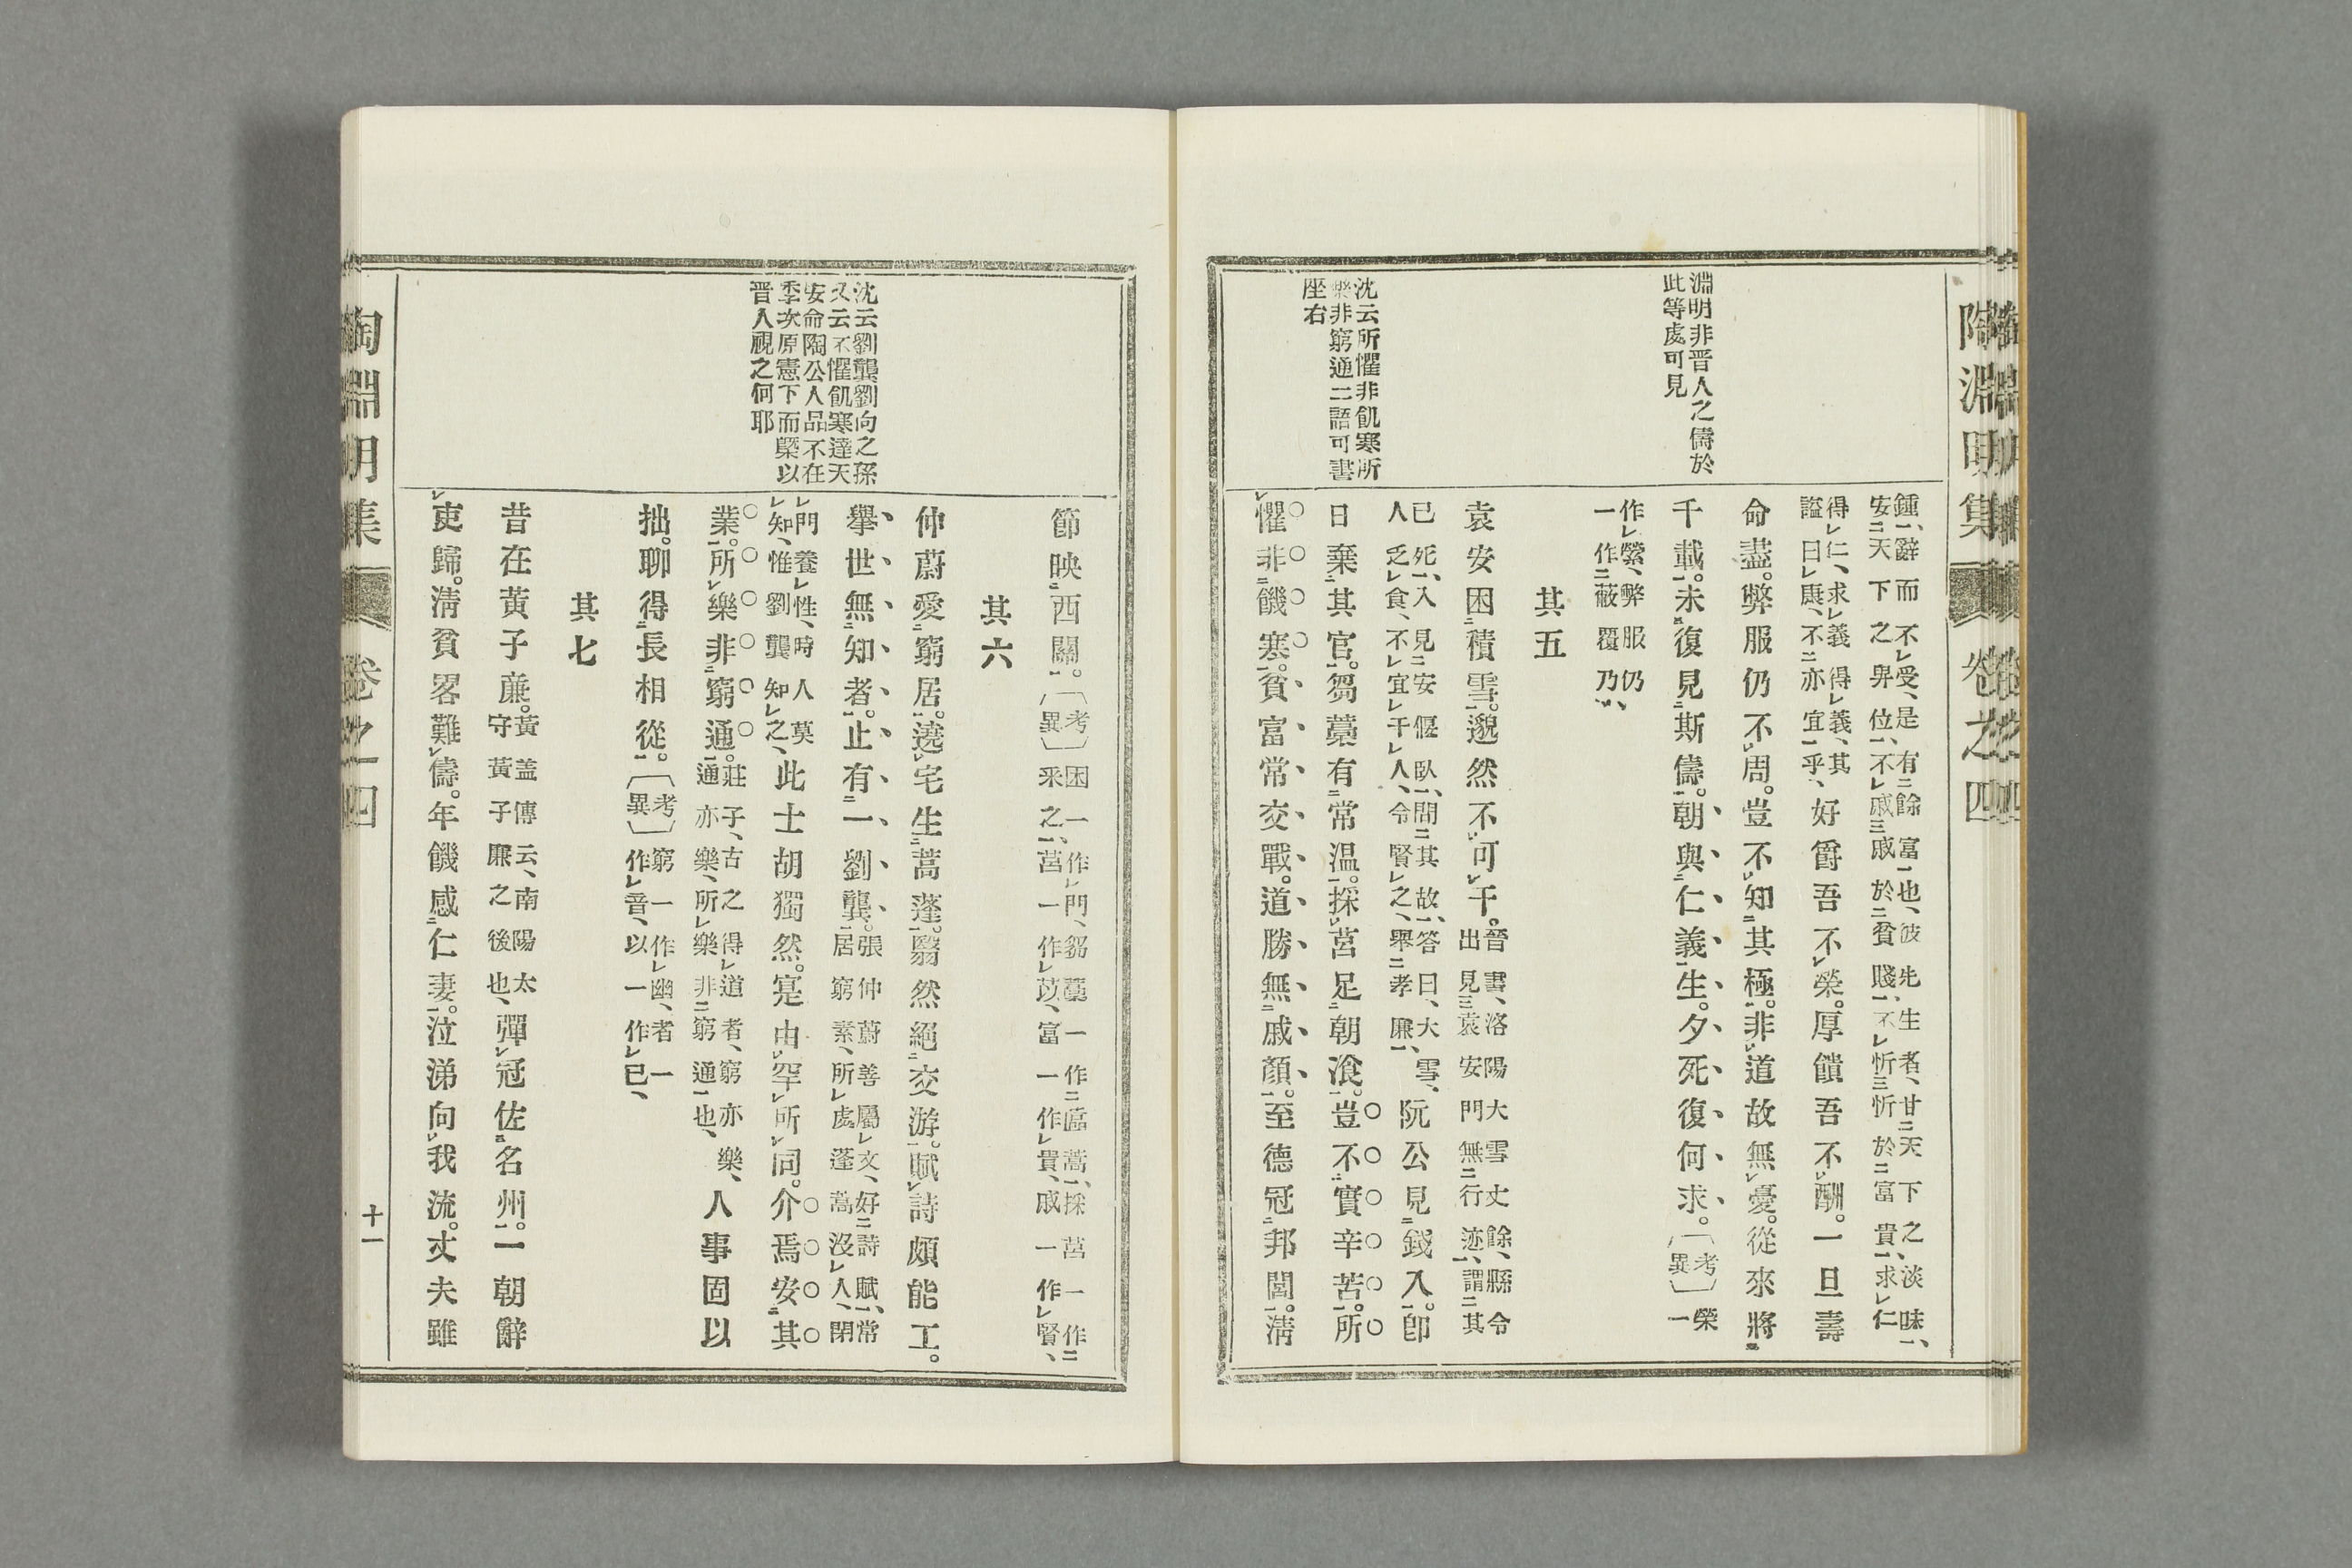 陶淵明集 卷之四
淵明非晋人之儔於
此等處可見
沈云所懼非飢寒所
樂非窮通二語可書
座右
鍾、辭而不受、是有餘富也、彼先生者、甘天下之淡味、
安天下之卑位、不戚戚於貧賤、不忻忻於富貴、求仁
得仁、求義得義、其
謚曰康、不亦宜乎、好爵吾不榮。厚饋吾不酬。一旦壽
命盡。弊服仍不周。豈不知其極。非道故無憂。從來將
千載。未復見斯儔。朝與仁義生。夕死復何求。〔考異〕榮一
作縈、弊服仍
一作蔽覆乃、
其五
袁安困積雪。邈然不可干。晉書、洛陽大雪丈餘、縣令
出見袁安門無行迹、謂其
已死、入見安偃臥、問其故、答曰、大雪、
人乏食、不宜干人、令賢之、擧孝廉、阮公見錢入。卽
日棄其官。芻藁有常温。採莒足朝飡。豈不實辛苦。所
懼非饑寒。貧富常交戰。道勝無戚顏。至德冠邦閭。淸
沈云劉龔劉向之孫
又云不懼飢寒達天
安命陶公人品不在
季次原憲下而槩以
晋人視之何耶
節映西關。〔考異〕困一作門、芻藁一作藁蒿、採莒一作
采之、莒一作苡、富一作貴、戚一作賢、
其六
仲蔚愛窮居。遶宅生蒿蓬。翳然絕交游。賦詩頗能工。
擧世無知者。止有一劉龔。張仲蔚善屬文、好詩賦、常
居窮素、所處蓬蒿沒人、閉
門養性、時人莫
知、惟劉龔知之、此士胡獨然。寔由罕所同。介焉安其
業。所樂非窮通。莊子、古之得道者、窮亦樂、
通亦樂、所樂非窮通也、人事固以
拙。聊得長相從。〔考異〕窮一作幽、者一
作音、以一作已、
其七
昔在黃子廉。黃盖傳云、南陽太
守黃子廉之後也、彈冠佐名州。一朝辭
吏歸。淸貧畧難儔。年饑感仁妻。泣涕向我流。丈夫雖
陶淵明集 卷之四 十一